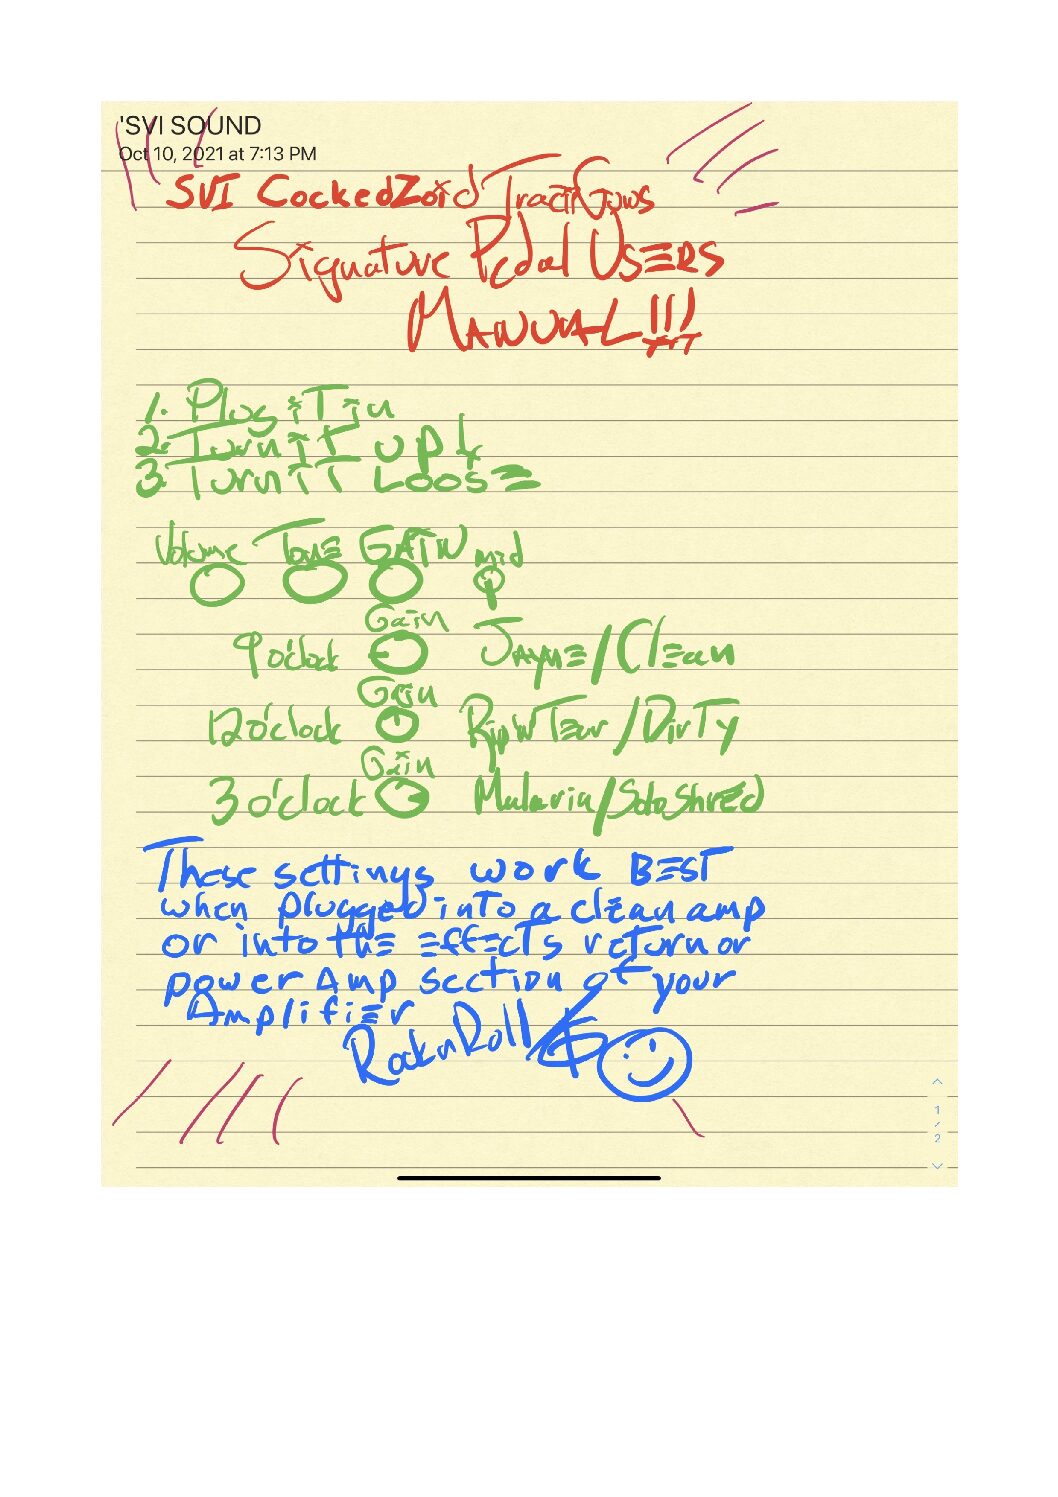 'SVI SOUND
Oct 10, 2021 at 7:13 PM
SVI CockedZoid Tracii Guns
Signature Pedal USERS
MANUAL!!!
1. Plug iT in
2. Turn iT up!
3. Turn iT LOOSE
Volume Tone GAIN mid
Gain
9 o'clock JAYNE/Clean
Gain
12 o'clock RipNTear/DirTy
Gain
3 o'clock Malaria/Solo Shred
These settings work BEST
when plugged into a clean amp
or into the EffEcTs return or
power Amp section of your
Amplifier
Rock n Roll
1
/
2